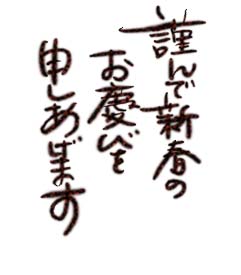 謹んで新春の
お慶びを
申しあげます